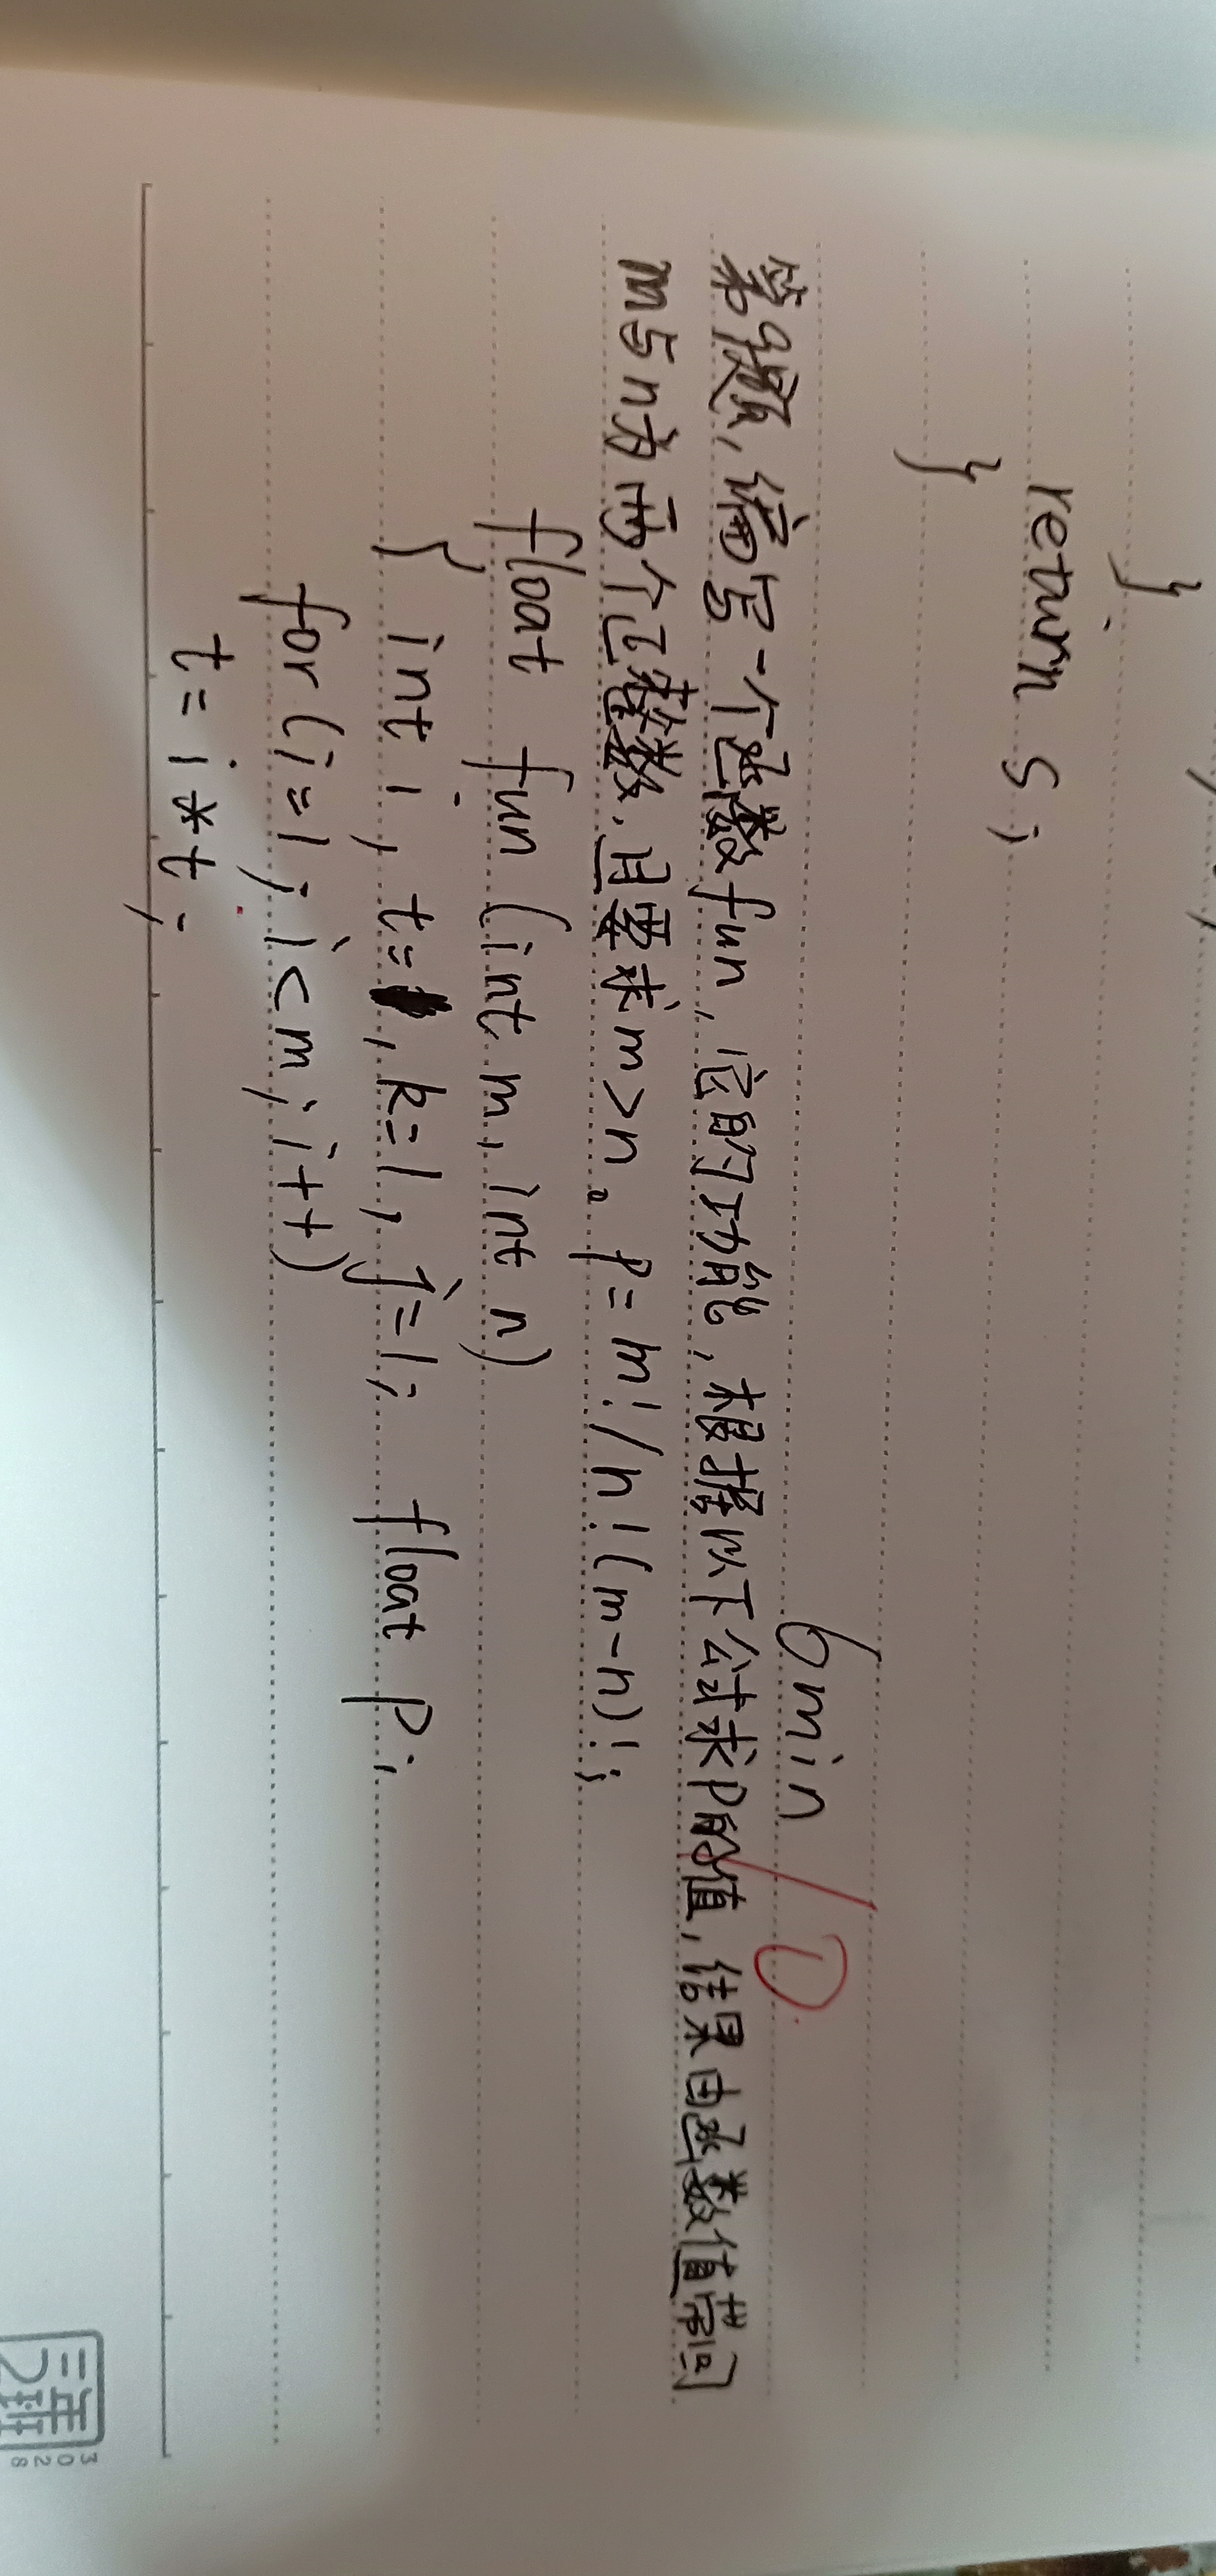 }
return s;
}
6min
10
第9题,编写一个函数fun,它的功能,根据以下公式求P的值,结果由函数值带回
m与n为两个正整数.且要求m>n。p=m!/n!(m-n)!;
float fun (int m, int n)
{
int i, t=1, k=1, j=1; float p;
for(i=1; i<m; i++)
t=i*t;
3028